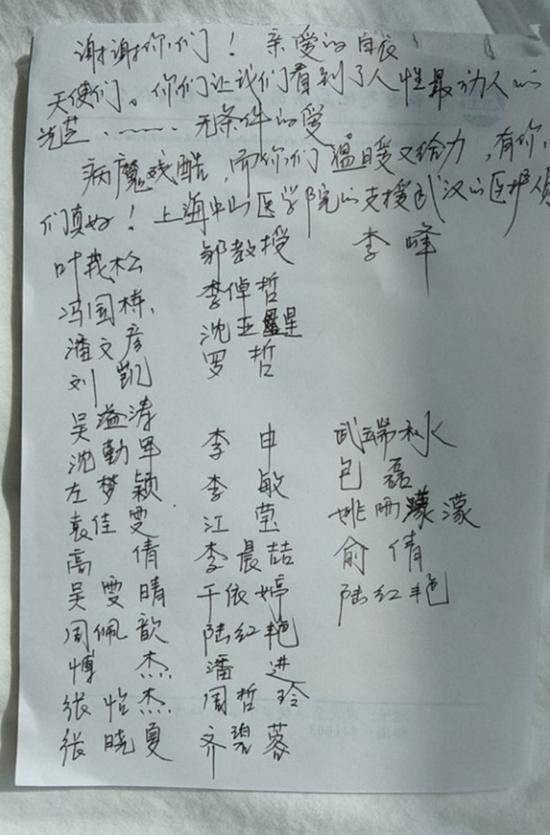 谢谢你们！亲爱的白衣
天使们。你们让我们看到了人性最动人的
光芒……无条件的爱
病魔残酷，而你们温暖又给力，有你
们真好！上海中山医学院的支援武汉的医护
叶茂松 邹教授 李峰
冯国栋 李倬哲
潘文彦 沈亚星
刘凯 罗哲
吴溢涛
沈勤军 李申 武端
左梦颖 李敏 包磊
袁佳雯 江莹 姚雨濛
高倩 李晨喆 俞倩
吴雯晴 于依婷 陆红艳
周佩歆 陆红艳
傅杰 潘进
张恺杰 周哲玲
张晓夏 齐碧蓉